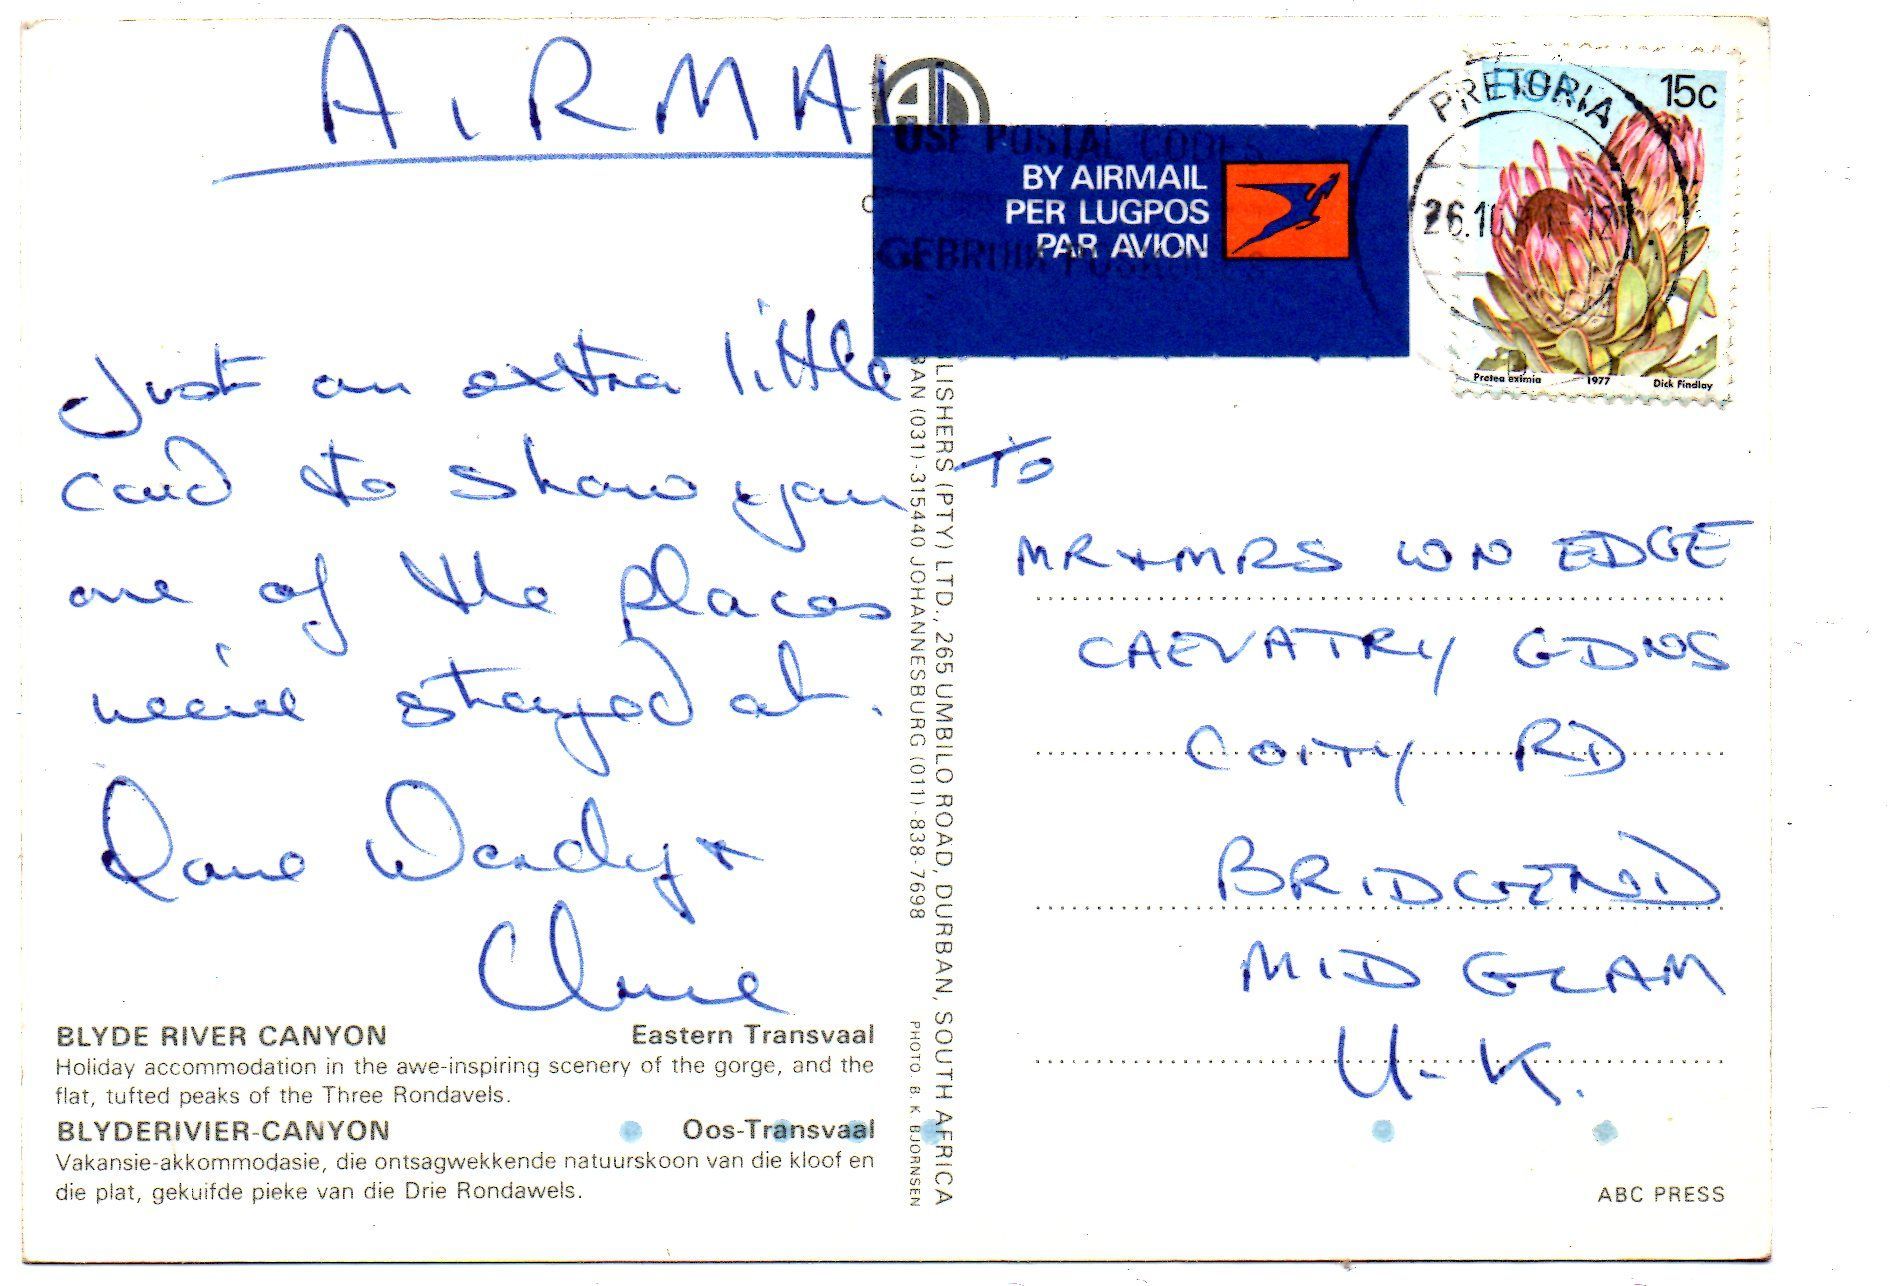 AIRMAI
USE POSTAL CODES
BY AIRMAIL
PER LUGPOS
PAR AVION
GEBRUIK POSKODES
PRETORIA
26.10
12
RSA
15c
Protea eximia 1977 Dick Findlay
Just an extra little
card to show you
one of the places
we've stayed at.
Love Wendy +
Clive
BLYDE RIVER CANYON Eastern Transvaal
Holiday accommodation in the awe-inspiring scenery of the gorge, and the
flat, tufted peaks of the Three Rondavels.
BLYDERIVIER-CANYON Oos-Transvaal
Vakansie-akkommodasie, die ontsagwekkende natuurskoon van die kloof en
die plat, gekuifde pieke van die Drie Rondawels.
LISHERS (PTY) LTD., 265 UMBILO ROAD, DURBAN, SOUTH AFRICA
BAN (031)-315440 JOHANNESBURG (011)-838-7698
PHOTO. B. K. BJORNSEN
To
MR + MRS WN EDGE
GDNS
COITY RD
BRIDGEND
MID GLAM
U-K.
ABC PRESS